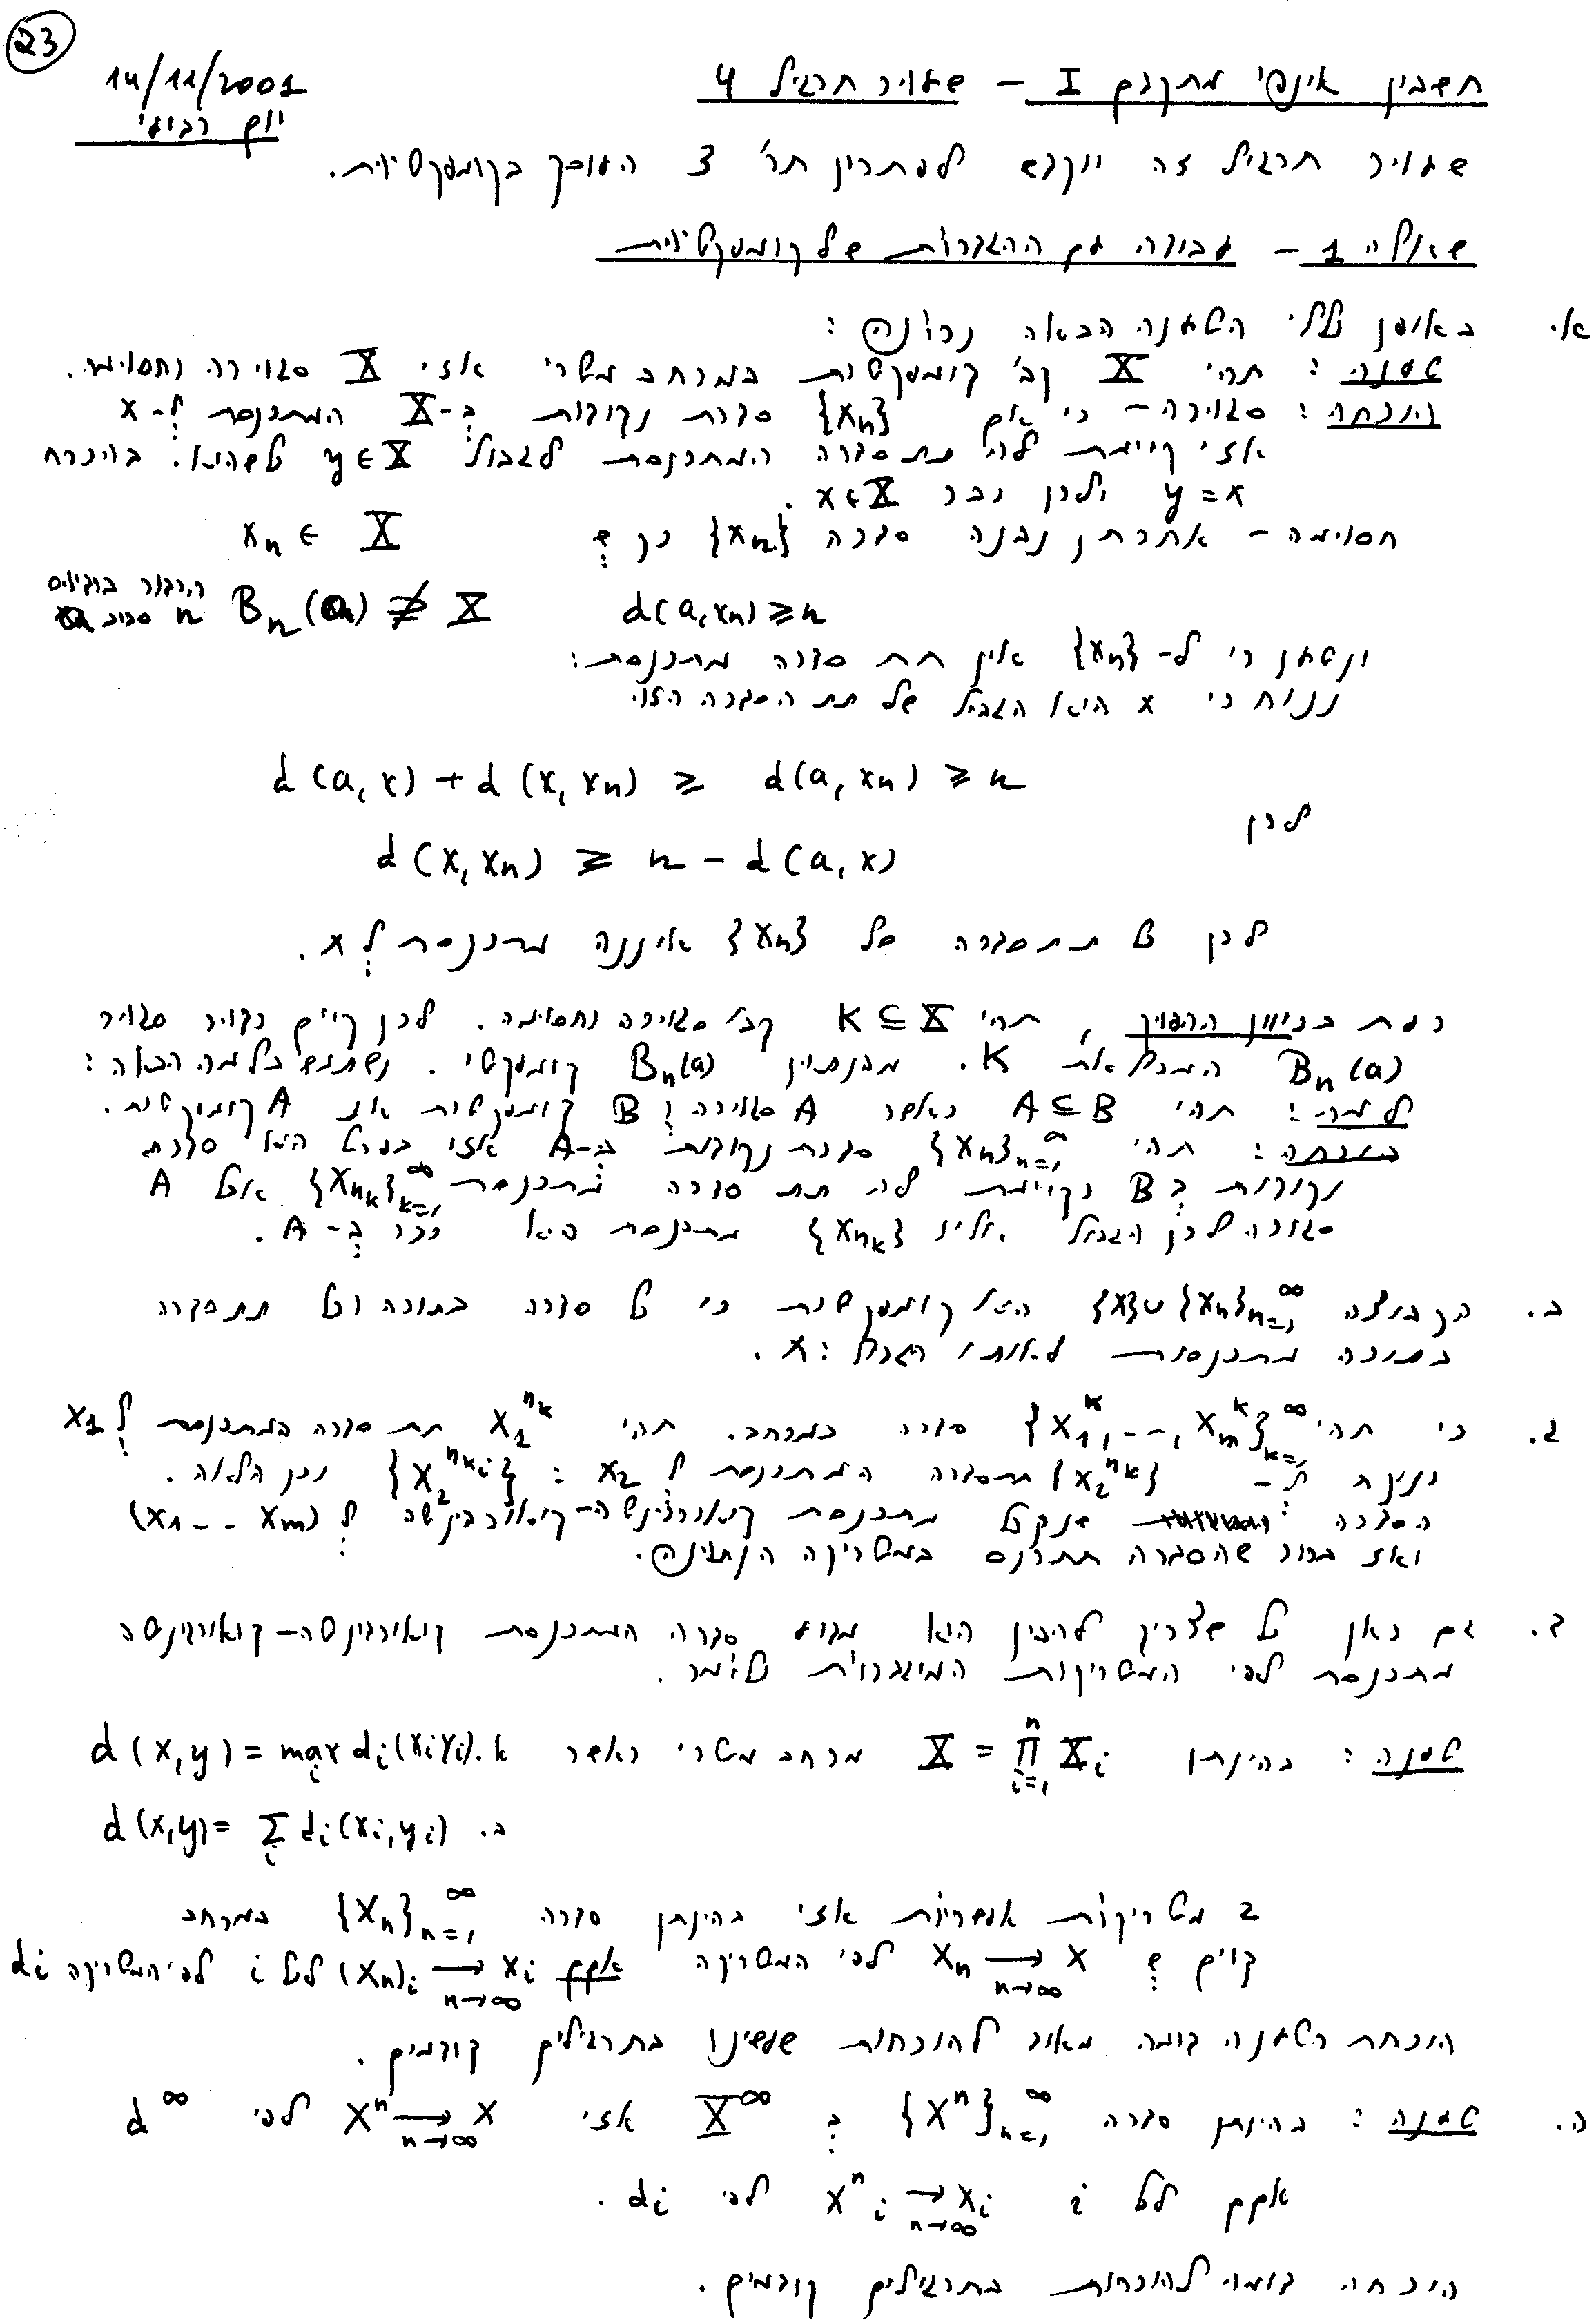 23
14/11/2001
יום רביעי
חשבון אינפי מתקדם I – שיעור תרגיל 4
שיעור תרגיל זה יוקדש לפתרון תר' 3 העוסק בקומפקטיות.
שאלה 1 – עבודה עם ההגדרות של קומפקטיות
א. באופן כללי הטענה הבאה נכונה:
טענה: תהי X קב' קומפקטית במרחב מטרי אזי X סגורה וחסומה.
הוכחה: סגורה – כי אם {xn} סדרת נקודות ב-X המתכנסת ל-x
אזי קיימת לה תת סדרה המתכנסת לגבול y∈X כלשהו. בהכרח
y=x ולכן כבר x∈X.
חסומה – אחרת נבנה סדרה {xn} כך ש xn ∈ X
d(a,xn)≥n Bn(a) ⊉ X הכדור ברדיוס n סביב a
ונטען כי ל-{xn} אין תת סדרה מתכנסת:
נניח כי x הוא הגבול של תת הסדרה הזו
d(a,x)+d(x,xn) ≥ d(a,xn) ≥ n
לכן
d(x,xn) ≥ n – d(a,x)
לכן כל תת סדרה של {xn} איננה מתכנסת ל x.
כעת בכיוון ההפוך, תהי K⊆X קב' סגורה וחסומה. לכן קיים כדור סגור
Bn(a) המכיל את K. מהנתון Bn(a) קומפקטי. נשתמש בלמה הבאה:
למה: תהי A⊆B כאשר A סגורה ו B קומפקטית אז A קומפקטית.
הוכחה: תהי {xn}∞n=1 סדרת נקודות ב-A אזי בפרט היא סדרת
נקודות ב B וקיימת לה תת סדרה מתכנסת {xnk}∞k=1 אבל A
סגורה לכן הגבול אליו {xnk} מתכנסת הוא כבר ב-A.
ב. הקבוצה {x}∪{xn}∞n=1 היא קומפקטית כי כל סדרה בתוכה וכל תת סדרה
בתוכה מתכנסות לאותו הגבול: x.
ג. כי תהי {x1^k,--,xm^k}∞k=1 סדרה במרחב. תהי x1^nk תת סדרה המתכנסת ל x1
ל- {x2^nk} תת סדרה המתכנסת ל x2: {x2^nki} וכן הלאה.
הסדרה שנקבל מתכנסת קואורדינטה-קואורדינטה ל (x1--xm)
ואז ברור שהסדרה תתכנס במטריקה הנתונה.
ד. גם כאן כל שצריך להבין הוא מדוע סדרה המתכנסת קואורדינטה-קואורדינטה
מתכנסת לפי המטריקות המוגדרות כלומר.
טענה: בהינתן X = ∏ⁿi=1 Xi מרחב מטרי כאשר א. d(x,y)=max_i di(xi,yi)
ב. d(x,y)= Σ_i di(xi,yi)
2 מטריקות אפשריות אזי בהינתן סדרה {xn}∞n=1 במרחב
קיים ש xn →n→∞ x לפי המטריקה אמם (xn)i →n→∞ xi לכל i לפי המטריקה di
הוכחת הטענה דומה מאוד להוכחות שעשינו בתרגילים קודמים.
ה. טענה: בהינתן סדרה {x^n}∞n=1 ב X^∞ אזי x^n →n→∞ x לפי d^∞
אמם לכל i x^n_i →n→∞ xi לפי di.
הוכחה דומה להוכחות בתרגילים קודמים.